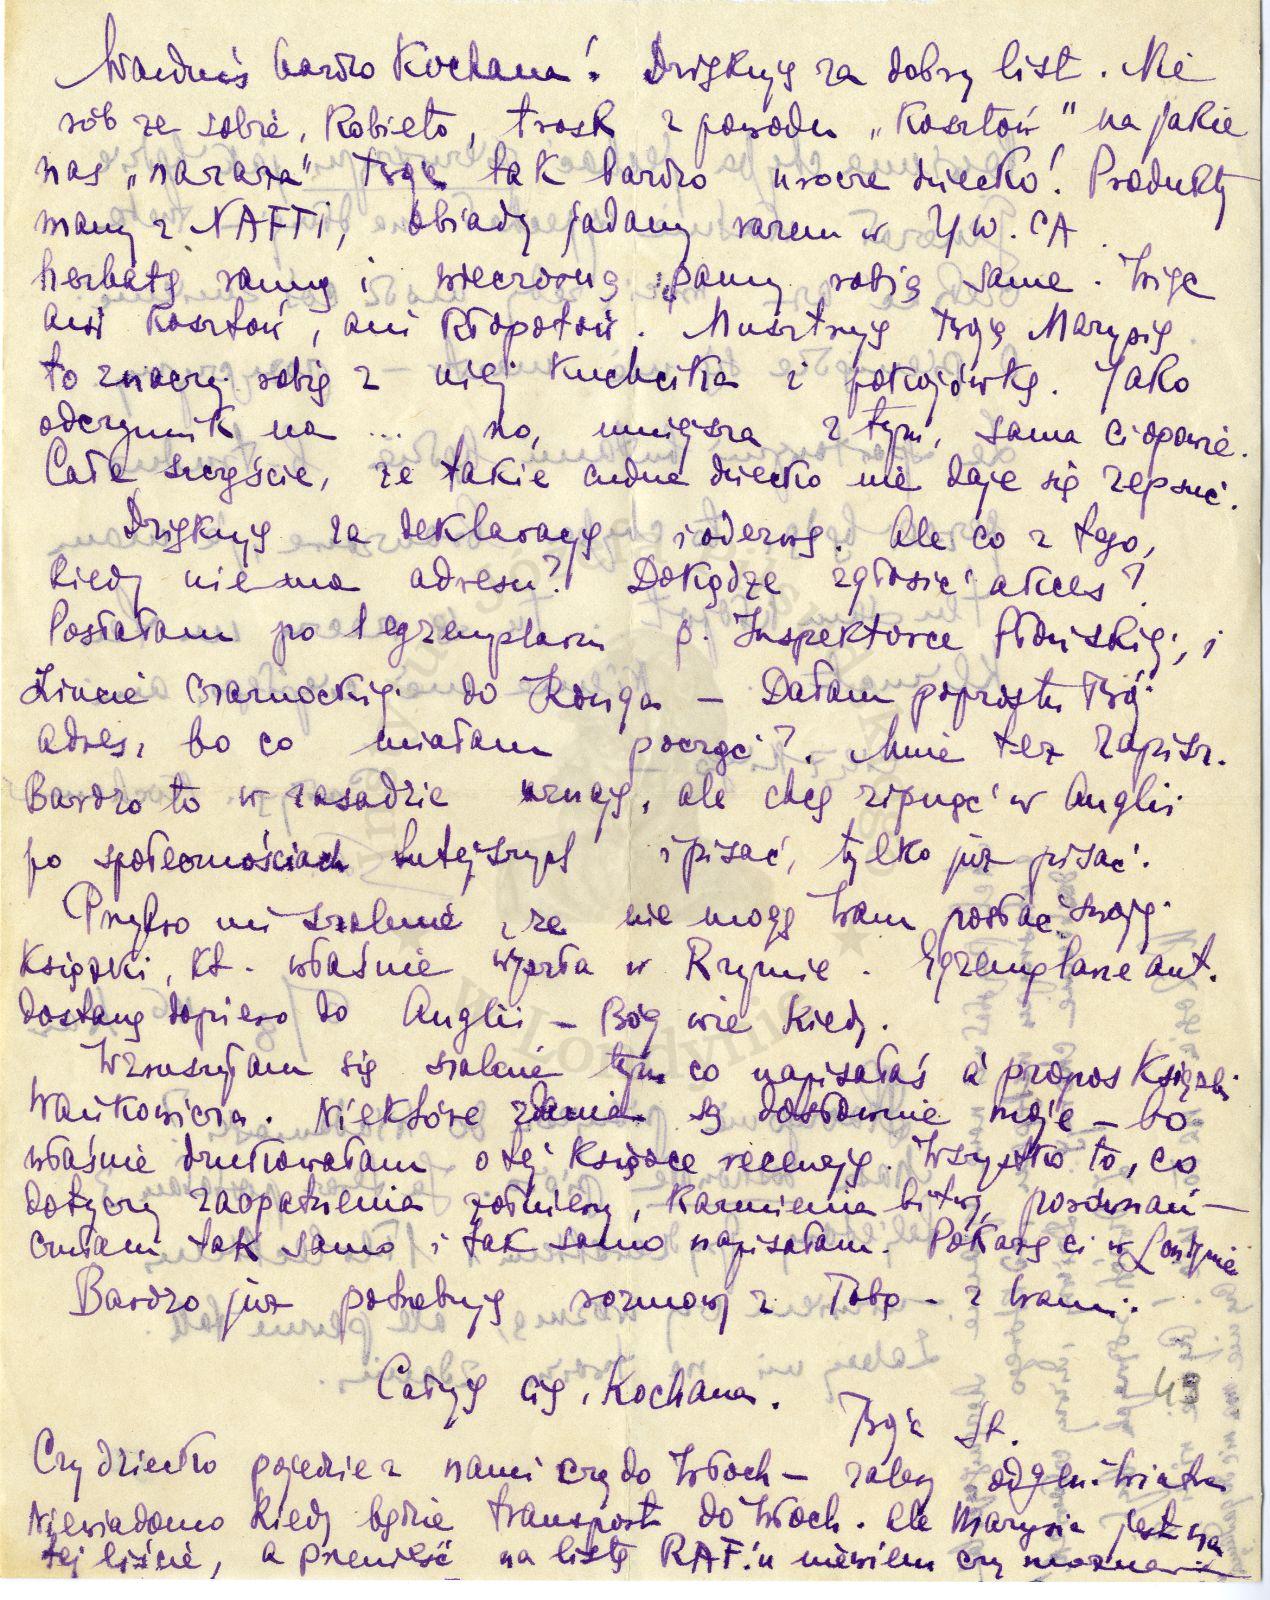 Wanduś bardzo Kochana! Dziękuję za dobry list. Nie
rób ze sobie, Kobieto, trosk z powodu „Kosztów" na jakie
nas „naraża" Twoje tak bardzo urocze dziecko! Produkty
mamy z NAFTi, obiady jadamy razem w Y.W.CA.
herbatę ranną i wieczorną panny robią same. Więc
ani Kosztów, ani Kłopotów. Musztruję Twoją Marysię
to znaczy robię z niej Kuchcika i pokojówkę. Jako
odczynnik na ... no, mniejsza z tym, sama ci opowie.
Całe szczęście, że takie cudne dziecko nie daje się zepsuć.
Dziękuję za deklarację i odezwę. Ale co z tego,
Kiedy nie ma adresu? Dokądże zgłosić akces?
Posłałam po 1 egzemplarzu p. Inspektorce i
Czarnockiej do Konga – Dałam poprostu Twój
adres, bo co miałam począć? Mnie też zapisz.
Bardzo to w zasadzie uznaję, ale chcę zipnąć w Anglii
po społecznościach tutejszych i pisać, tylko już pisać.
Przykro mi szalenie, że nie mogę Wam posłać swojej
Książki, Kt. właśnie wyszła w Rzymie. Egzemplarze aut.
dostanę dopiero do Anglii – Bóg wie Kiedy.
Wzruszyłam się szalenie tym co napisałaś à propos Książki
Wańkowicza. Niektóre zdania są dosłownie moje – bo
właśnie drukowałam o tej Książce recenzję. Wszystko to, co
dotyczy zaopatrzenia żołnierzy, Karmienia bitwy, porównań –
czułam tak samo i tak samo napisałam. Pokażę ci w Londynie
Bardzo już potrzebuję rozmowy z Tobą – z Wami.
Całuję cię, Kochana.
Twoja St.
43
Czy dziecko pojedzie z nami czy do Włoch – zależy od gen. Wiatra
Niewiadomo Kiedy będzie transport do Włoch. Ale Marysia jest na
tej liście, a przenieść na listę RAF'u niewiem czy można